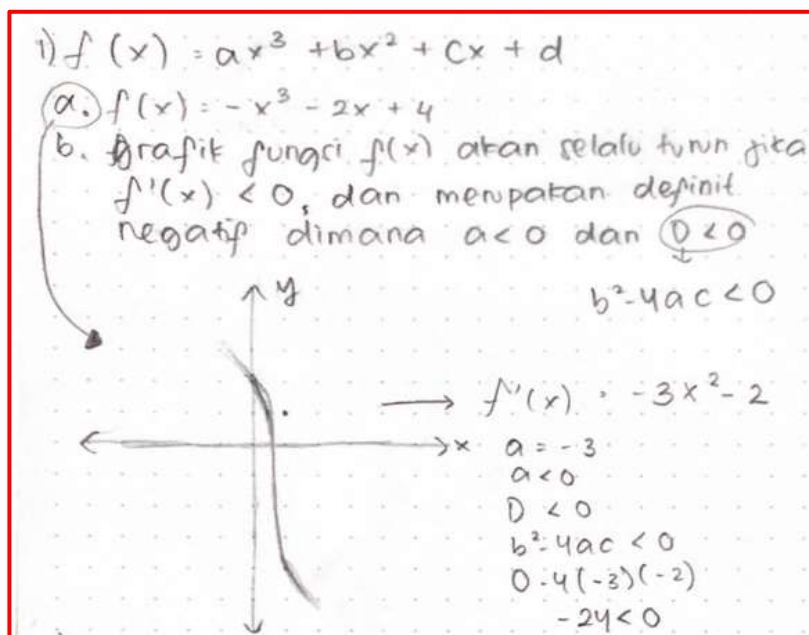 1) f(x) = ax³ + bx² + cx + d
a. f(x) = -x³ - 2x + 4
b. grafik fungsi f(x) akan selalu turun jika
f'(x) < 0, dan merupakan definit
negatif dimana a<0 dan D<0
b²-4ac<0
y
→ f'(x) = -3x²-2
x
a = -3
a<0
D<0
b²-4ac<0
0-4(-3)(-2)
-24<0